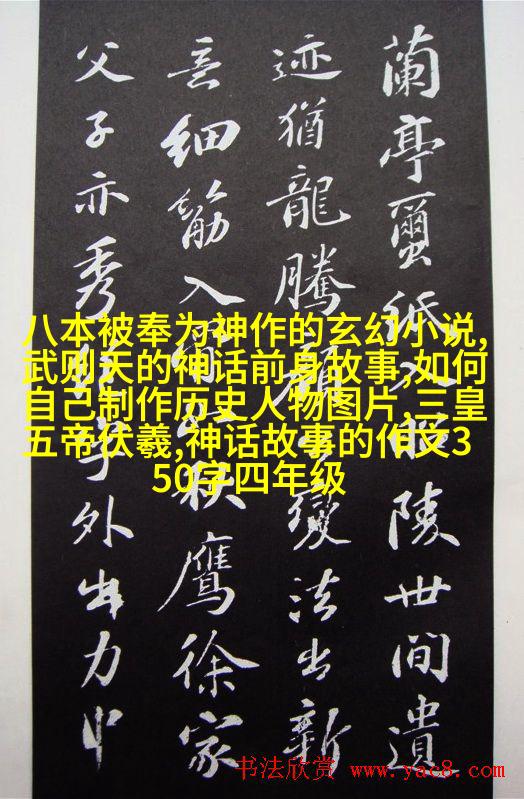 蘭亭蠒紙入昭陵世間遺
迹猶龍騰顏變法出新
意細筋入秋鷹徐家
父子亦秀字外出力中
八本被奉为神作的玄幻小说,
武则天的神话前身故事,如何
自己制作历史人物图片,三皇
五帝伏羲,神话故事的作文3
50字四年级
书法欣赏 www.yac8.com